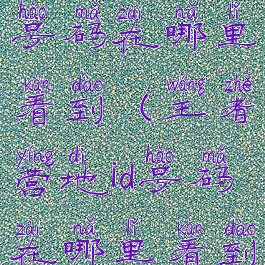 hào mǎ zài nǎ lǐ
号码在哪里
kàn dào wáng zhě
看到(王者
yíng dì hào mǎ
营地id号码
zài nǎ lǐ kàn dào
在哪里看到